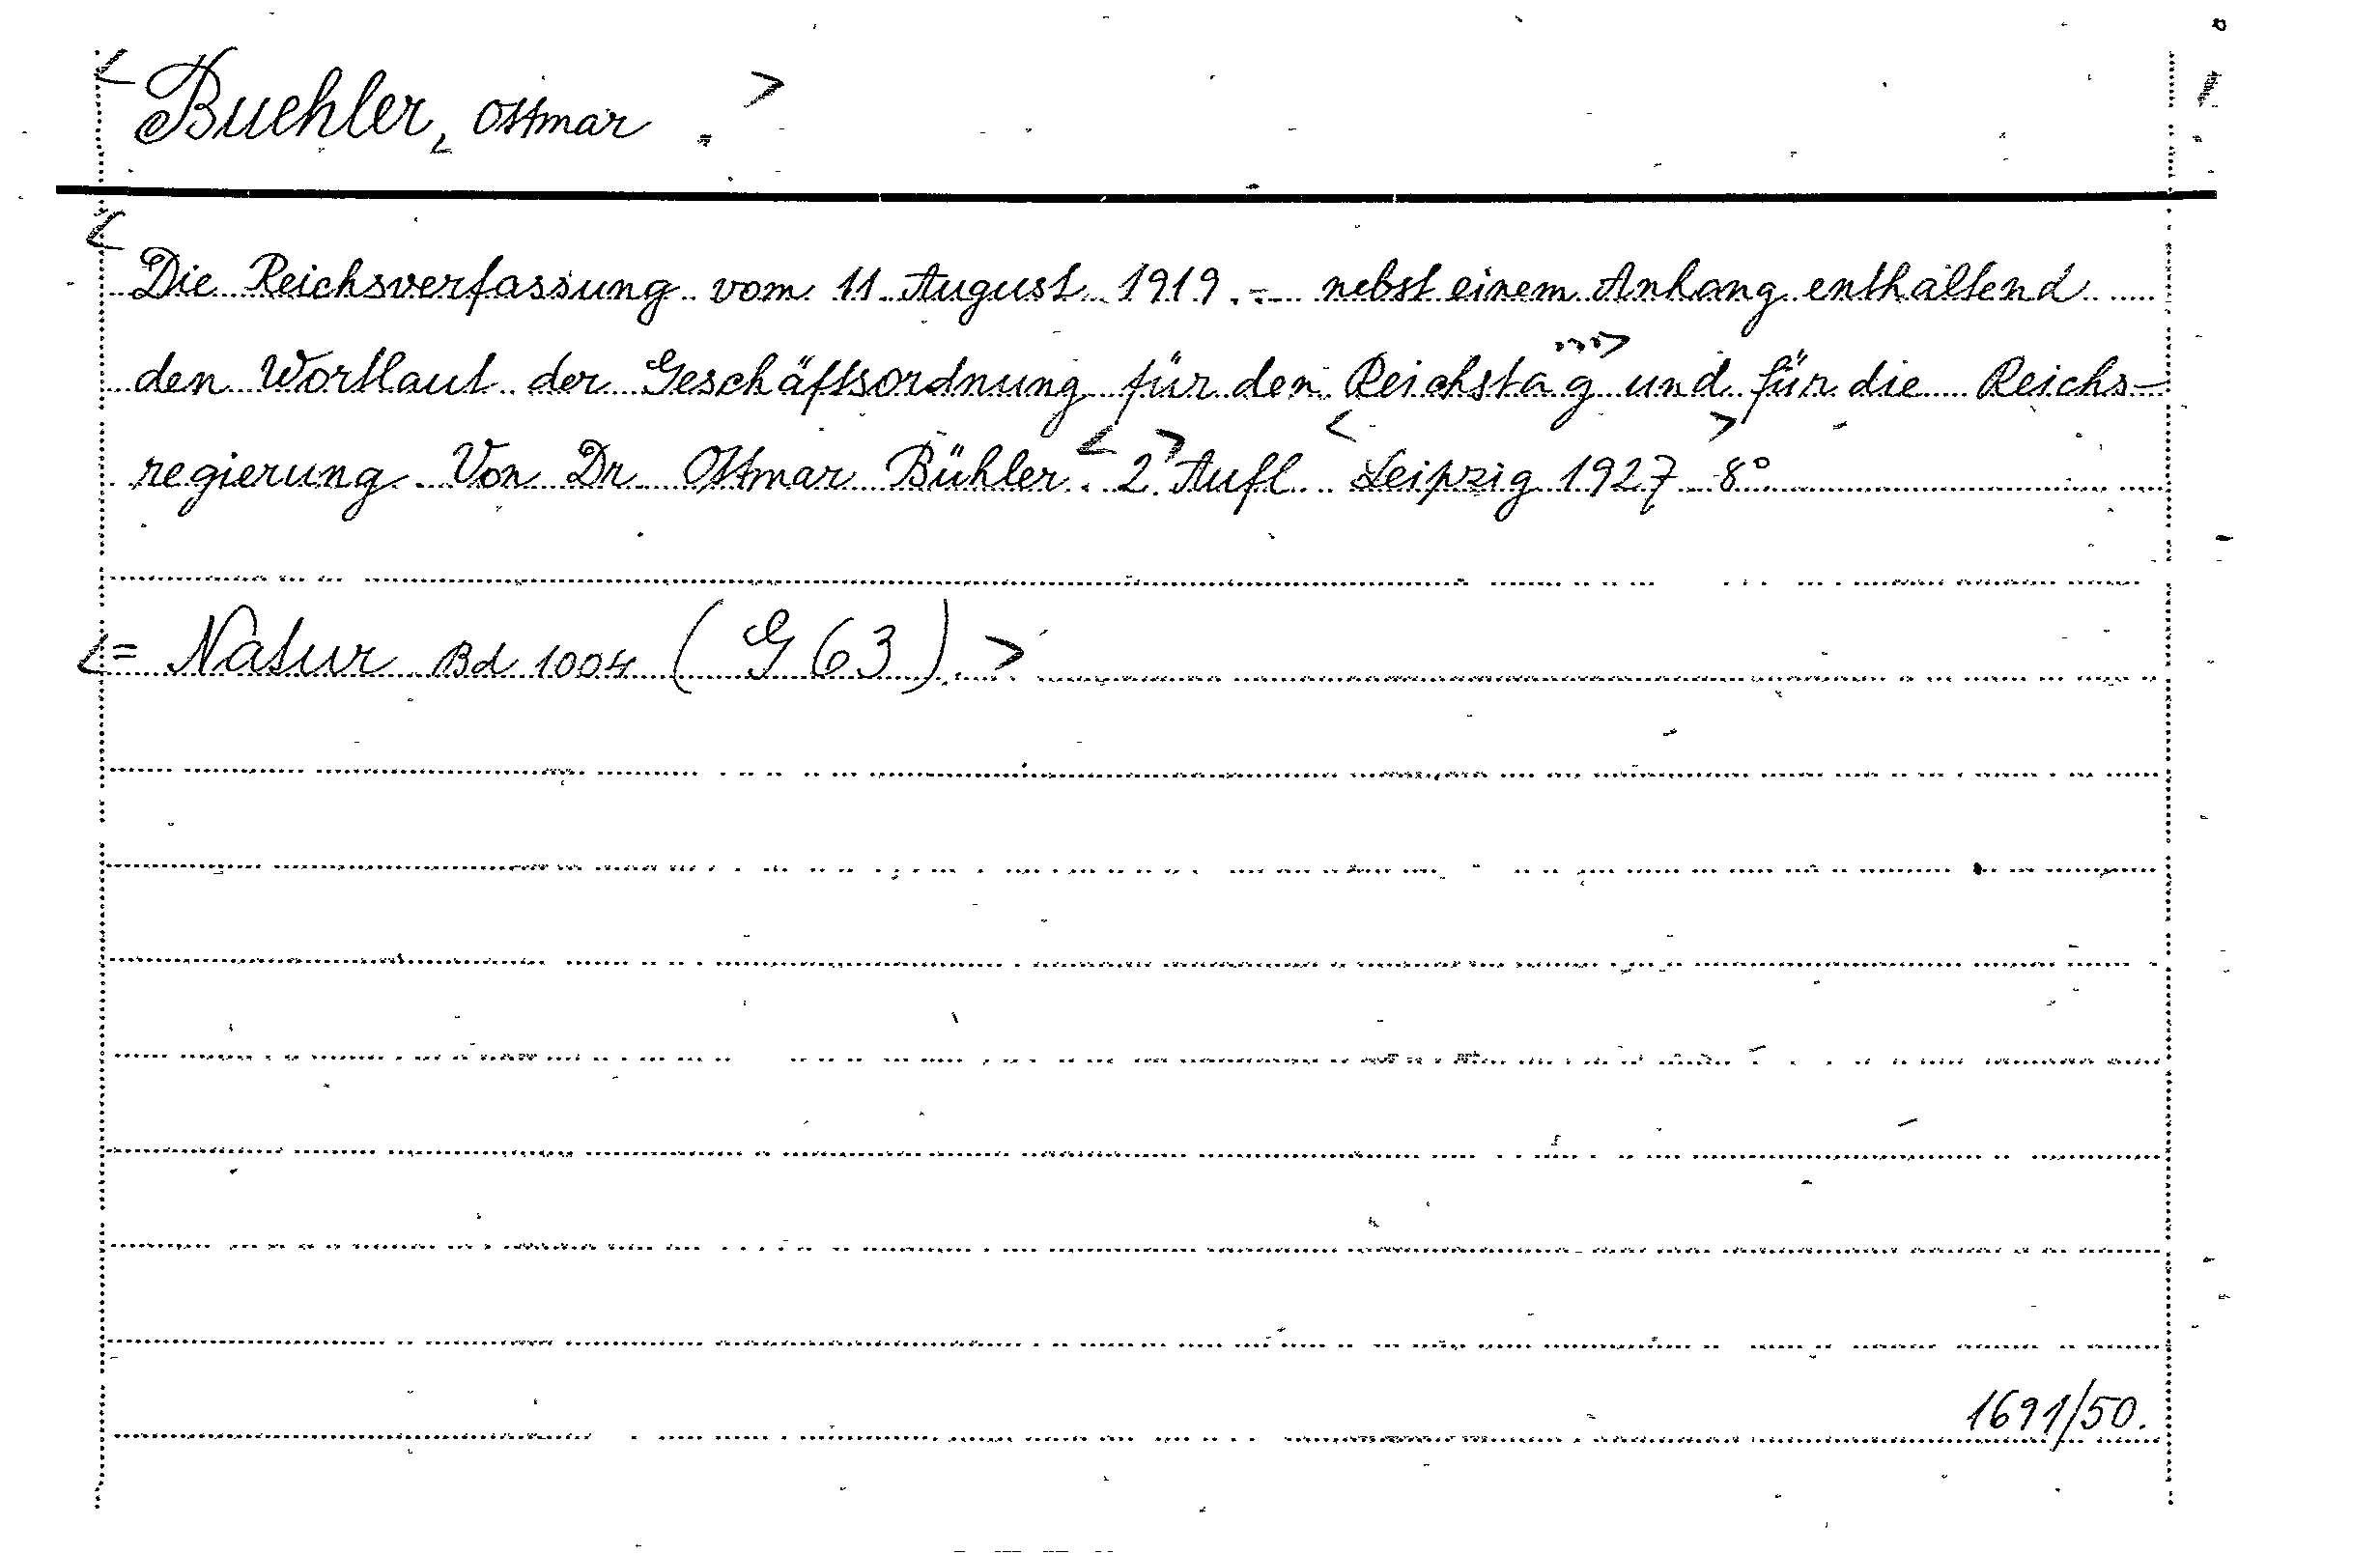 < Buehler, Ottmar . >
< Die Reichsverfassung vom 11 August 1919. - nebst einem Anhang enthaltend
den Wortlaut der Geschäftsordnung für den Reichstag ...> und für die Reichs-
regierung. Von Dr. Ottmar Bühler. < 2. > Aufl. < Leipzig 1927 > 8°
<= Natur Bd 1004 (G 63). >
1691/50.